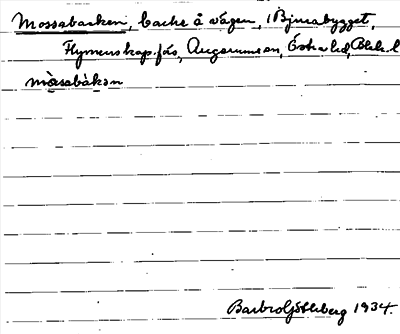 Mossabacken, backe å vägen, i Bjurabygget,
Hymenskap. fds, Augerum sn, Östra hd, Blek. l
mòssabàkan
Barbro Göthberg 1934.